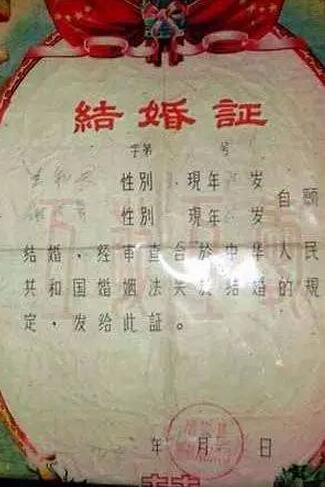 結婚証
字第 号
性别 現年 岁
性别 現年 岁
自願
结婚，经审查合於中华人民
共和国婚姻法关於结婚的規
定，发给此証。
年 月 日